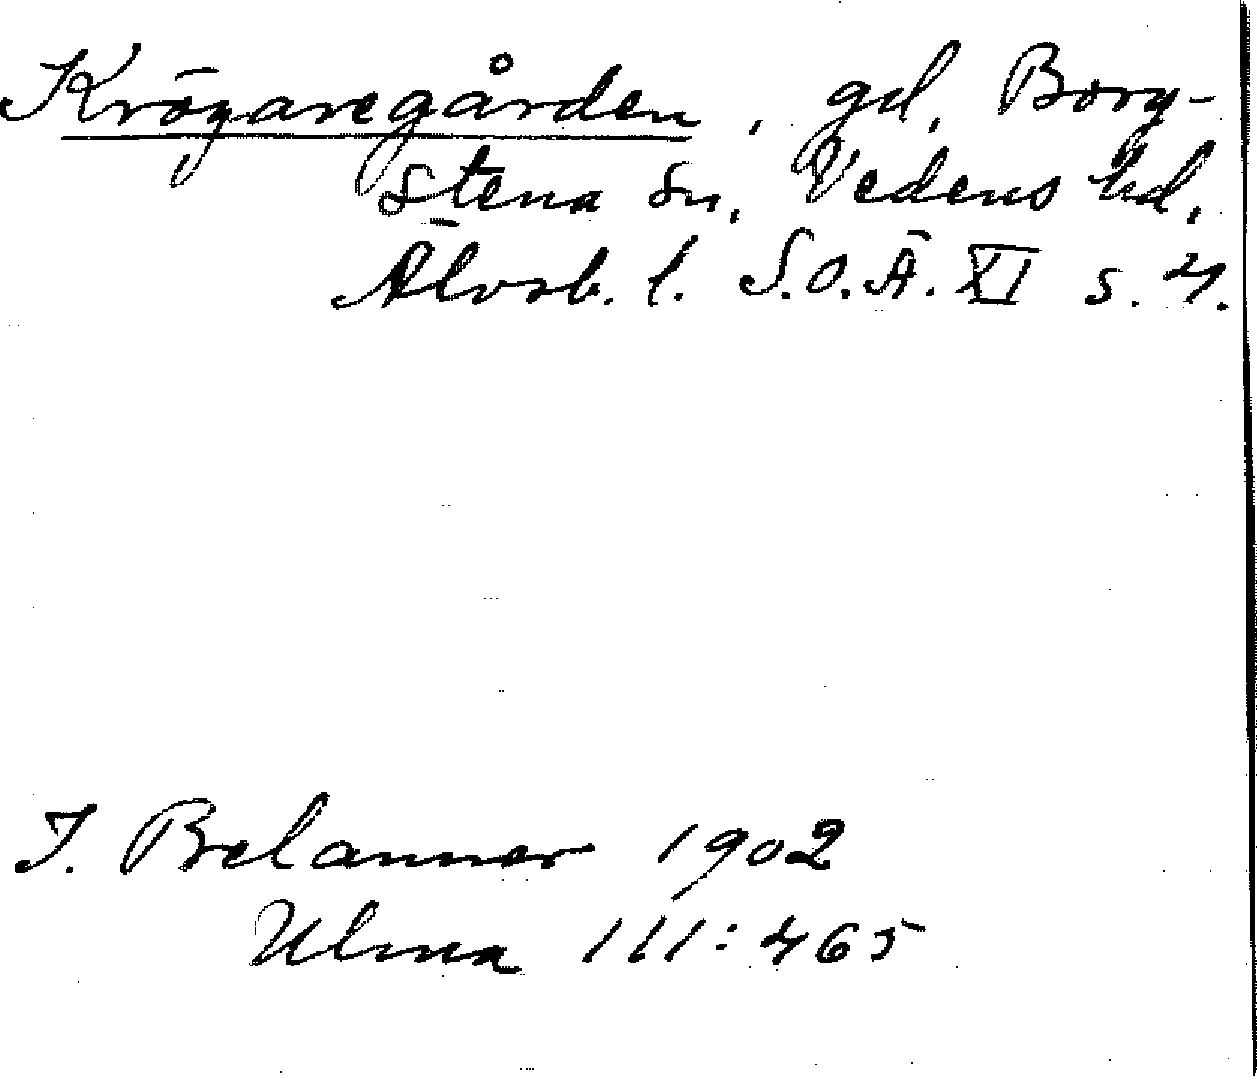 Krögaregården, gd, Borg-
stena sn, Vedens hd,
Älvsb. l. S.O.Ä. XI s. 4.
J. Belanner 1902
Ulma 111:465